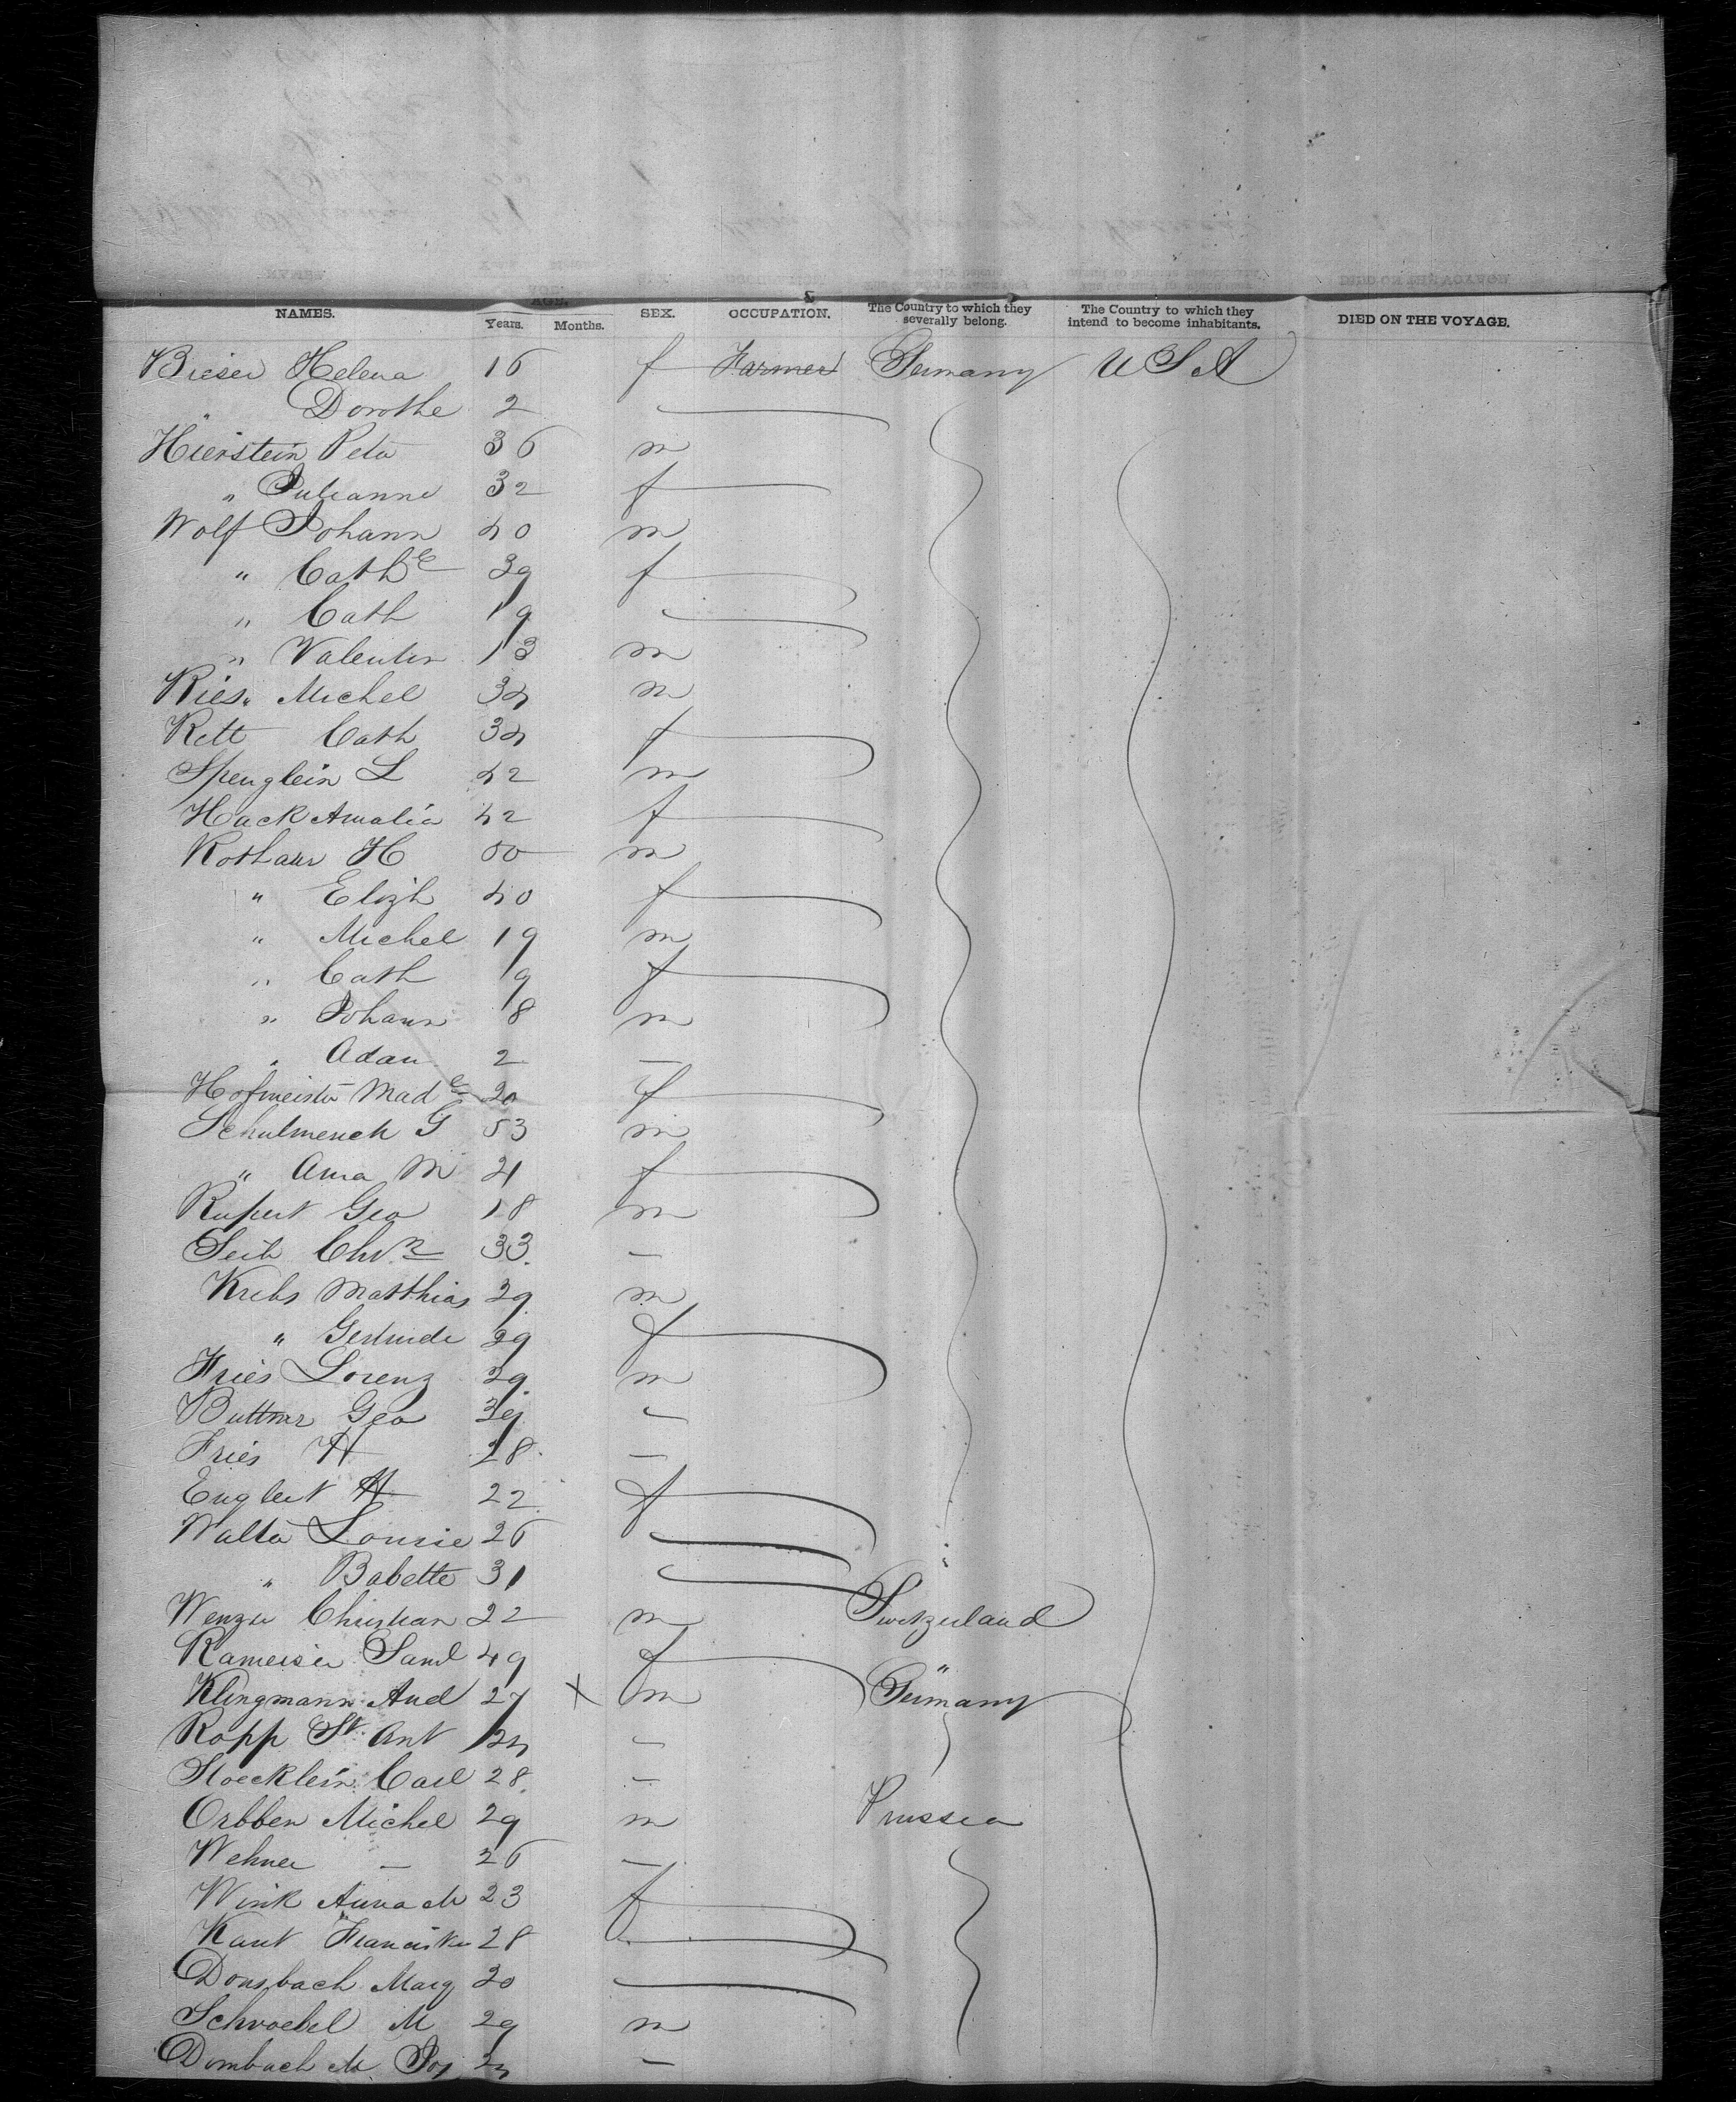 NAMES. AGE. Years. Months. SEX. OCCUPATION. The Country to which they severally belong. The Country to which they intend to become inhabitants. DIED ON THE VOYAGE.
Bieser Helena 16 f Farmer Germany U S A
" Dorothe 2
Hierstein Peter 36 m
" Julianne 32 f
Wolf Johann 40 m
" Cathe 39 f
" Cath 19
" Valentin 13 m
Ries " Michel 34 m
Rett Cath 34 f
Spenglein L 42 m
Hack Amalia 42 f
Rothaur H 50 m
" Elizh 40 f
" Michel 19 m
" Cath 9 f
" Johann 8 m
" Adam 2 —
Hofmeister Made 20 f
Schulmench G 53 m
" Anna M 21 f
Rupert Geo 18 m
Seib Chrn 33 —
Krebs Matthias 29 m
" Gertrude 29 f
Fries Lorenz 29 m
Buttner Geo 39 —
Fries H 28 —
Englert H 22 f
Walter Lousie 26
" Babette 31
Wenzer Christian 22 m Switzerland
Rameiser Saml 49 f "
Klingmann And 27 X m Germany
Ropp St. Ant 24 —
Stoecklein Carl 28 —
Orbben Michel 29 m Prussia
Wehner — 26 —
Wink Anna M 23 f
Kant Franciska 28
Donsbach Marg 20
Schwoebel M 29 m
Dombach M. Jos 24 —